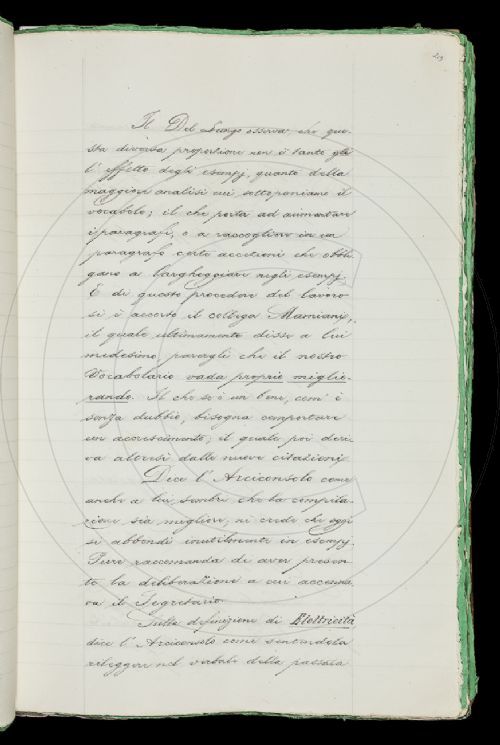 Il Del Lungo osserva che que-
sta diversa proporzione non è tanto già
l' effetto degli esempj, quanto della
maggiore analisi cui sottoponiamo il
vocabolo; il che porta ad aumentare
i paragrafi, e a raccogliere in un
paragrafo certe accezioni che obbli-
gano a largheggiare negli esempj.
E di questo procedere del lavoro
si è accorto il collega Mamiani,
il quale ultimamente disse a lui
medesimo parergli che il nostro
Vocabolario vada proprio miglio-
rando. Il che se è un bene, com' è
senza dubbio, bisogna comportare
un accrescimento; il quale poi deri-
va altresì dalle nuove citazioni.
Dice l' Arciconsolo come
anche a lui sembri che la compila-
zione sia migliore, nè crede che oggi
si abbondi inutilmente in esempj.
Pure raccomanda di aver presen-
te la deliberazione a cui accenna-
va il Segretario.
Sulla definizione di Elettricità
dice l' Arciconsolo come sentendola
rileggere nel verbale della passata